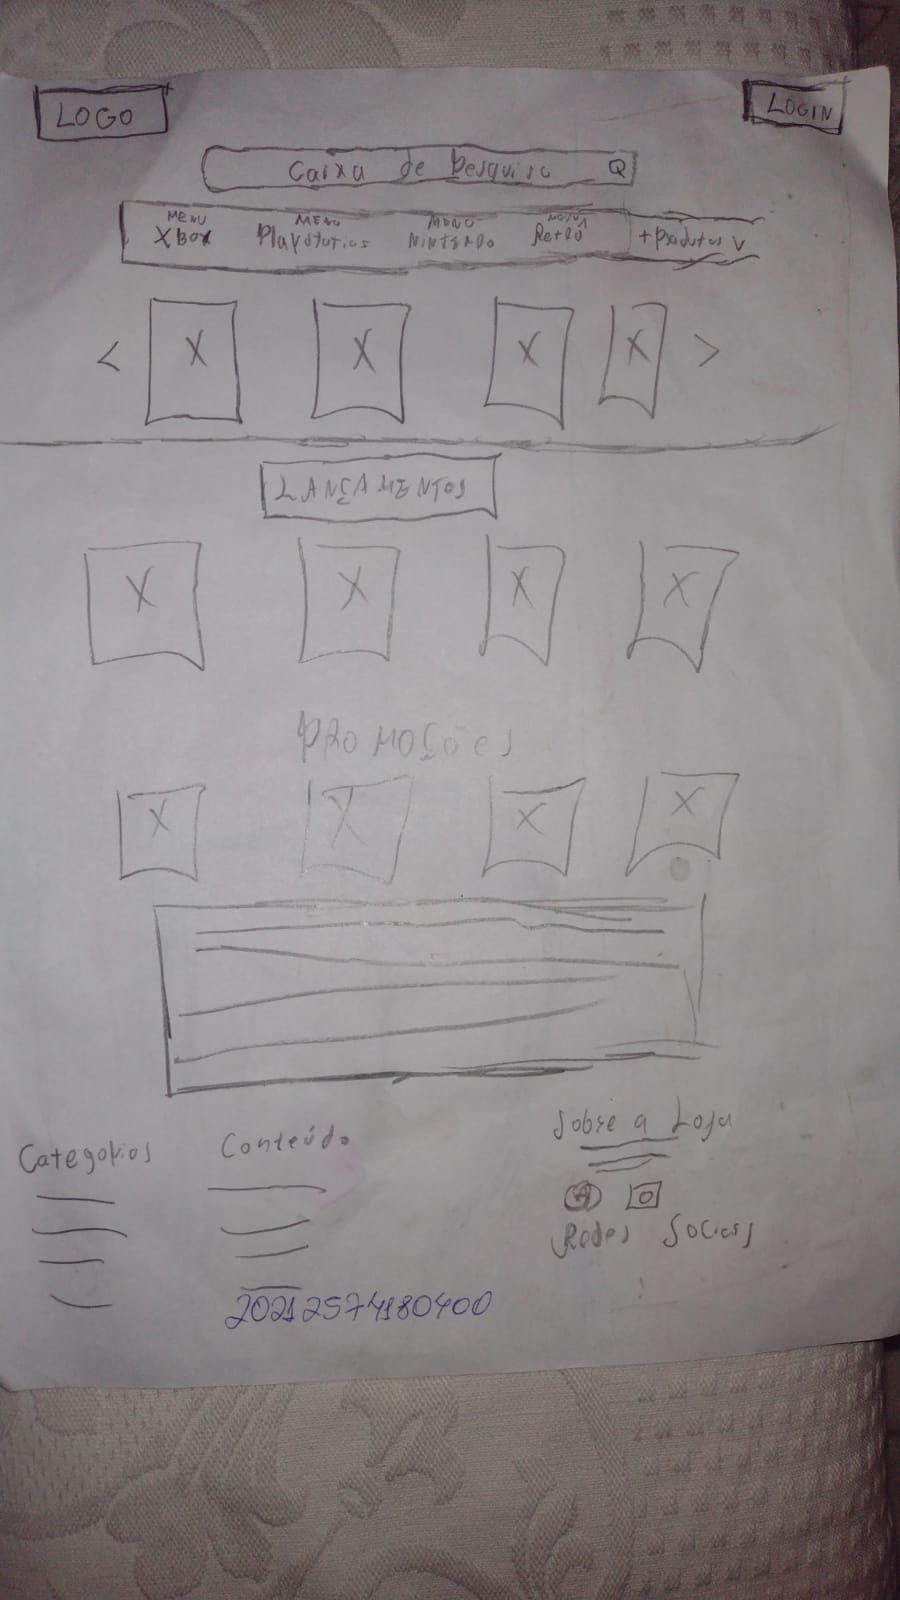 LOGO
LOGIN
Caixa de Pesquisa
MENU MENU MENU MENU
Xbox Playstation NINTENDO Retrô + Produtos v
< X X X X >
LANÇAMENTOS
X X X X
PROMOÇÕES
X X X X
Categorias Conteúdo Sobre a Loja
Redes Sociais
20212574180400